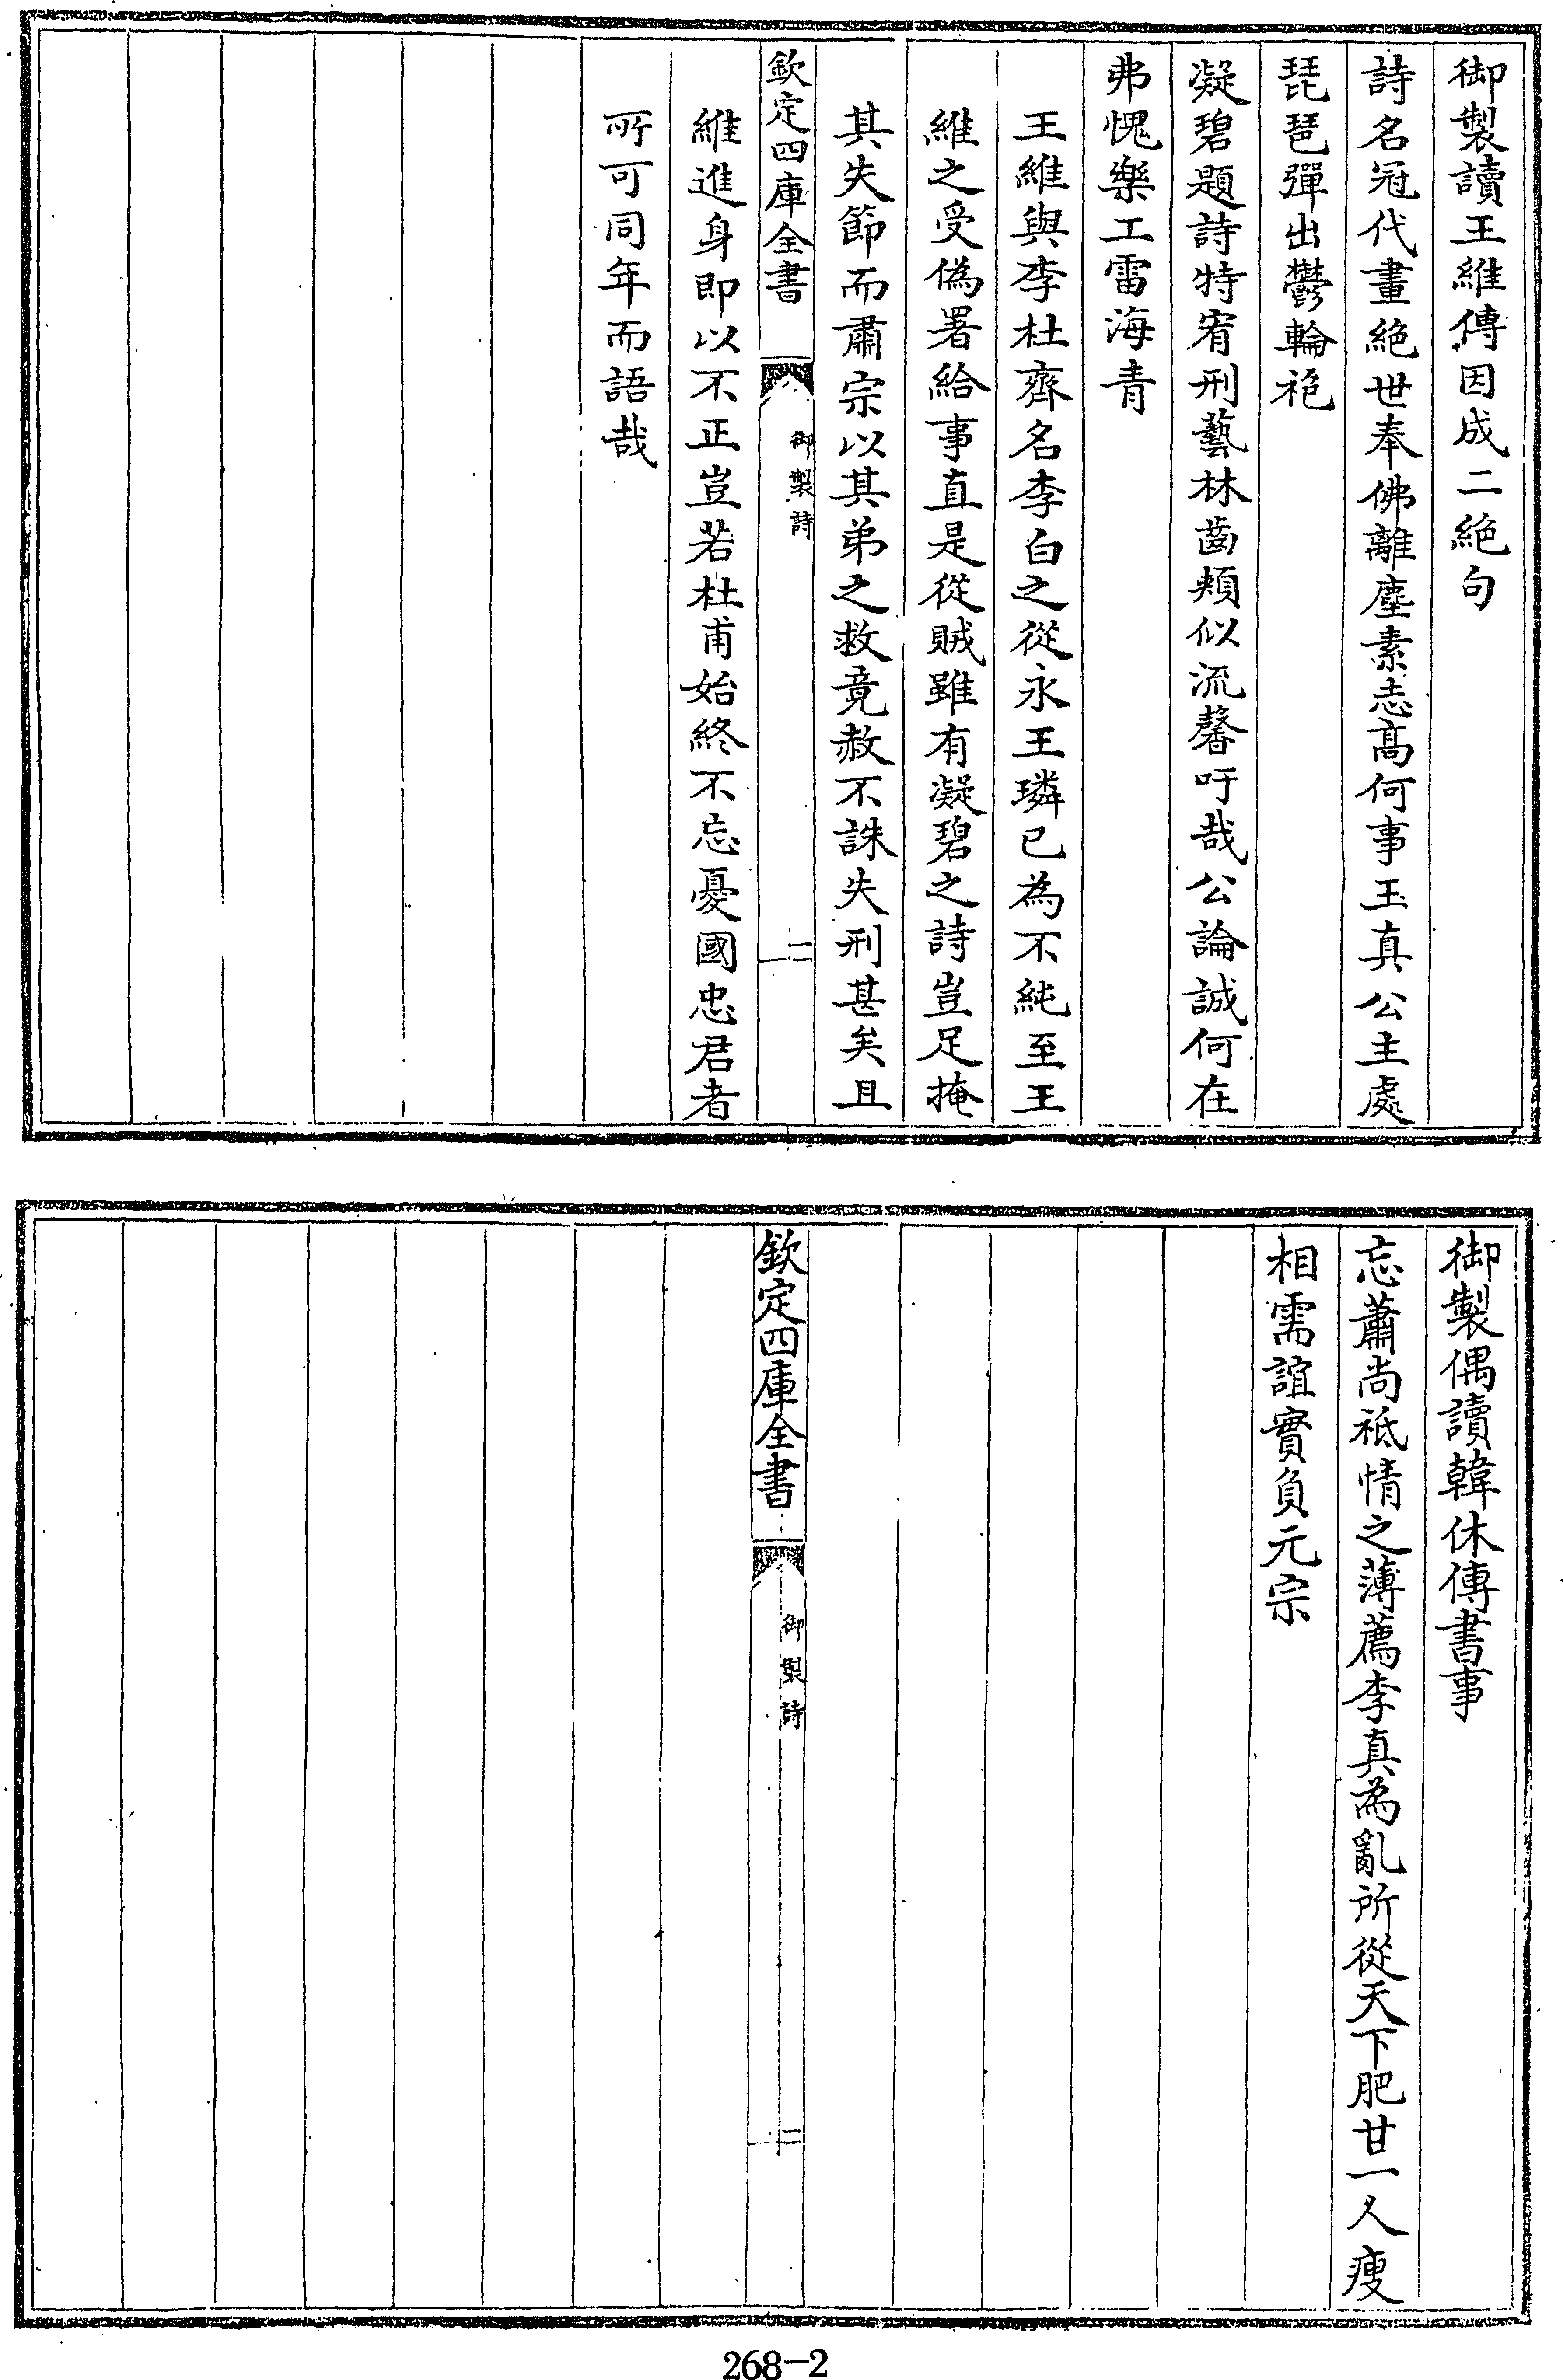 御製讀王維傳因成二絶句
詩名冠代畫絶世奉佛離塵素志髙何事玉真公主處
琵琶彈出鬱輪袍
凝碧題詩特宥刑藝林齒頰似流馨吁哉公論誠何在
弗愧樂工雷海青
王維與李杜齊名李白之從永王璘已為不純至王
維之受偽署給事直是從賊雖有凝碧之詩豈足掩
其失節而肅宗以其弟之救竟赦不誅失刑甚矣且
欽定四庫全書
御製詩
二
維進身即以不正豈若杜甫始終不忘憂國忠君者
所可同年而語哉
御製偶讀韓休傳書事
忘蕭尚祗情之薄薦李真為亂所從天下肥甘一人瘦
相需誼實負元宗
欽定四庫全書
御製詩
二
268-2